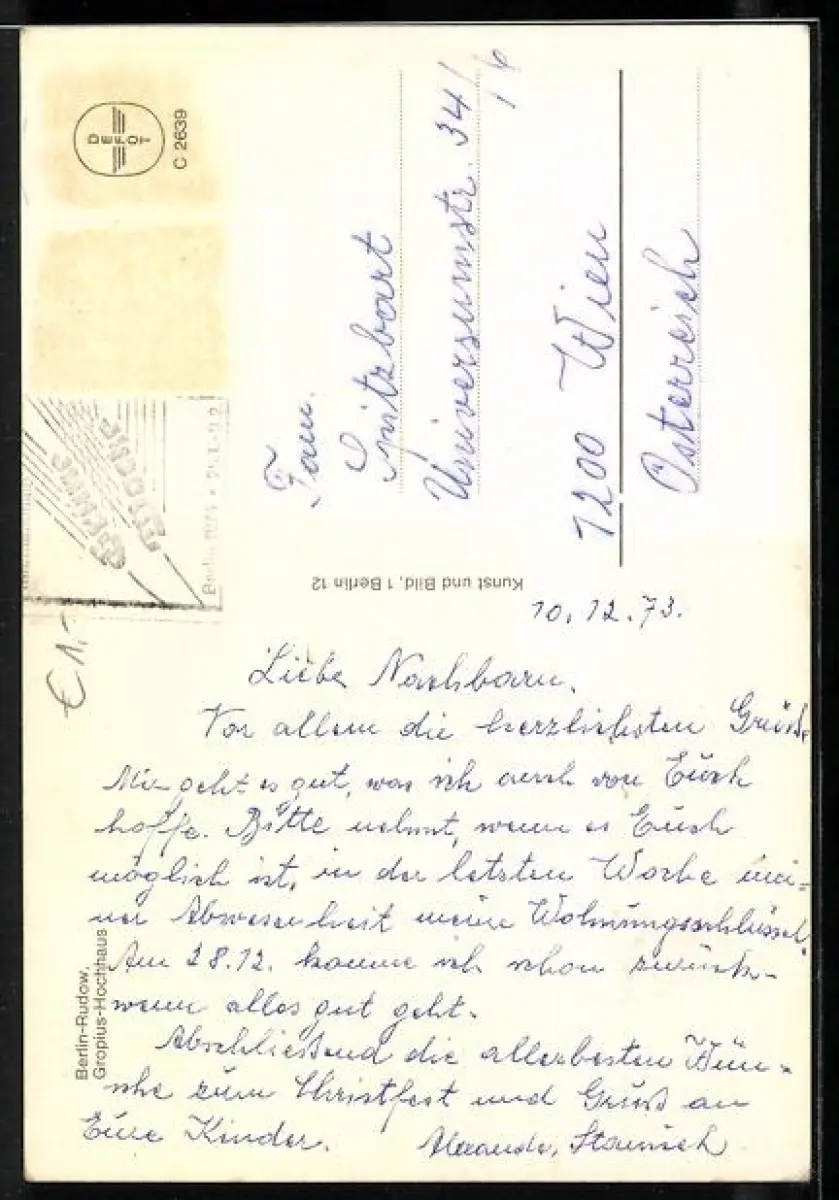 DEFOT
C 2639
Fam.
Spitzbart
Universumstr. 34/
/6
1200 Wien
Österreich
Kunst und Bild, 1 Berlin 12
€ 1,-
10.12.73.
Liebe Nachbarn.
Vor allem die herzlichsten Grüße
Mir geht es gut, was ich auch von Euch
hoffe. Bitte nehmt, wenn es Euch
möglich ist, in der letzten Woche mei-
ner Abwesenheit meine Wohnungsschlüssel.
Am 28.12. komme ich schon zurück-
wenn alles gut geht.
Abschließend die allerbesten Wün-
sche zum Christfest und Gruß an
Eure Kinder.
Berlin-Rudow,
Gropius-Hochhaus